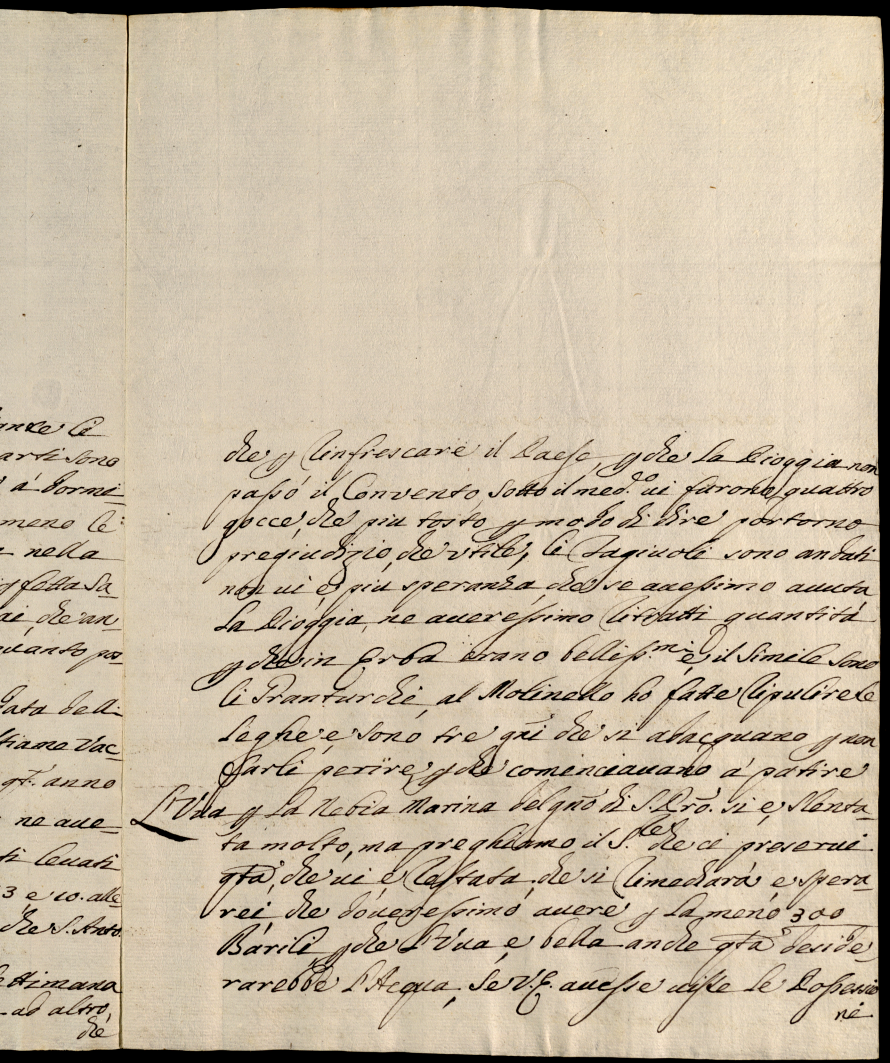 anze li
arti sono
à dormi
meno le
nella
p fetta Sa
ai, che an
quanto po
data bell
tiame Vac
qt. anno
ne ave
ti levati
3 e 10. alle
che S. Anto
ettimana
ad altro,
che
che p rinfrescare il Paese, p che La Pioggia non
passò il Convento, Sotto il med.º vi furono quattro
gocce, che piu tosto p modo di dire portorno
pregiudizio, che utile, li Fagiuoli sono andati
non vi è piu speranza, che se avessimo avuta
La Pioggia, ne averessimo ritratti quantità
p che in Erba erano belliss.mi, e il Simile sono
li Granturchi, al Molinello ho fatte ripulire le
Leghe, e sono tre gñi che si adacquano p non
farli perire, p che cominciavano à patire
L'Uva p La Nebia Marina del gño di S. Pro. si è Stenta
ta molto, ma preghiamo il S.re che ci preservi
qta, che vi è restata, che si rimediarà e spera
rei che doveressimo avere p Lameno 300
Barili, p che L'Uva è bella anche qta deside
rarebbe L'Acqua, Se V. E. avesse viste le Possessio
ni